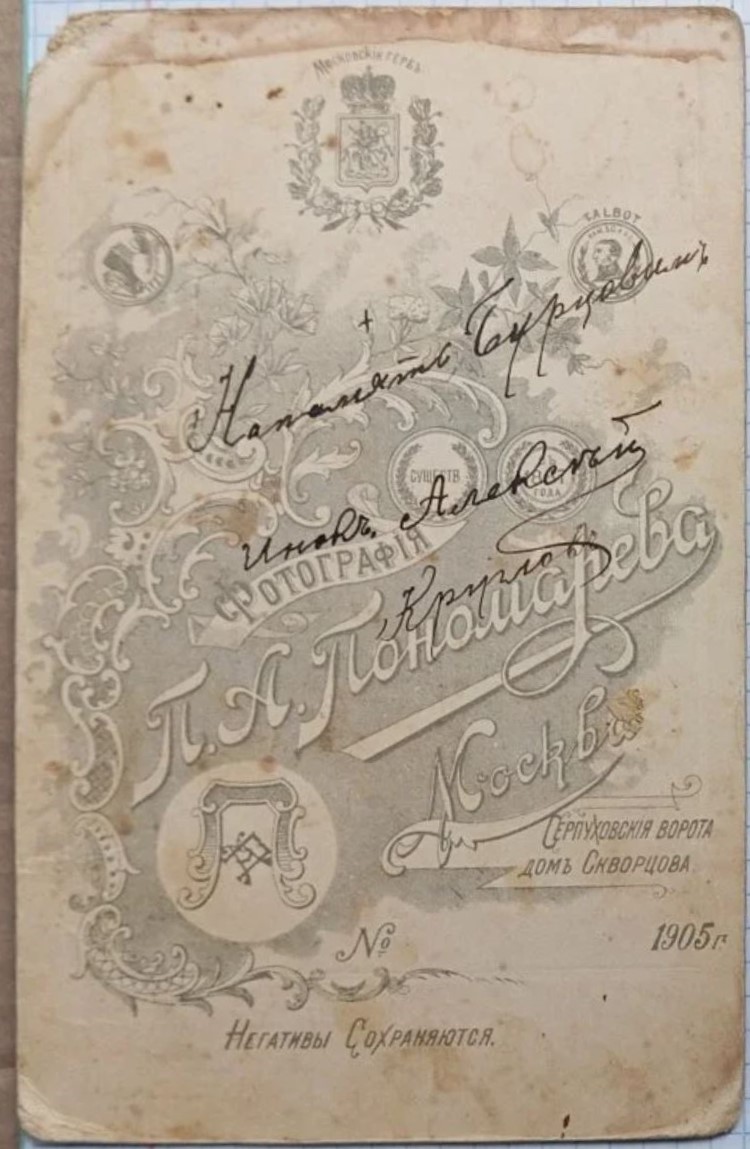 Московскій гербъ
TALBOT
+
Напамять Бурцовымъ
СУЩЕСТВ.
ГОДА
инокъ Алексѣй
Круглов
Фотографія
П. А. Пономарева
Москва
Серпуховскія ворота
домъ Скворцова
№
1905 г.
Негативы Сохраняются.